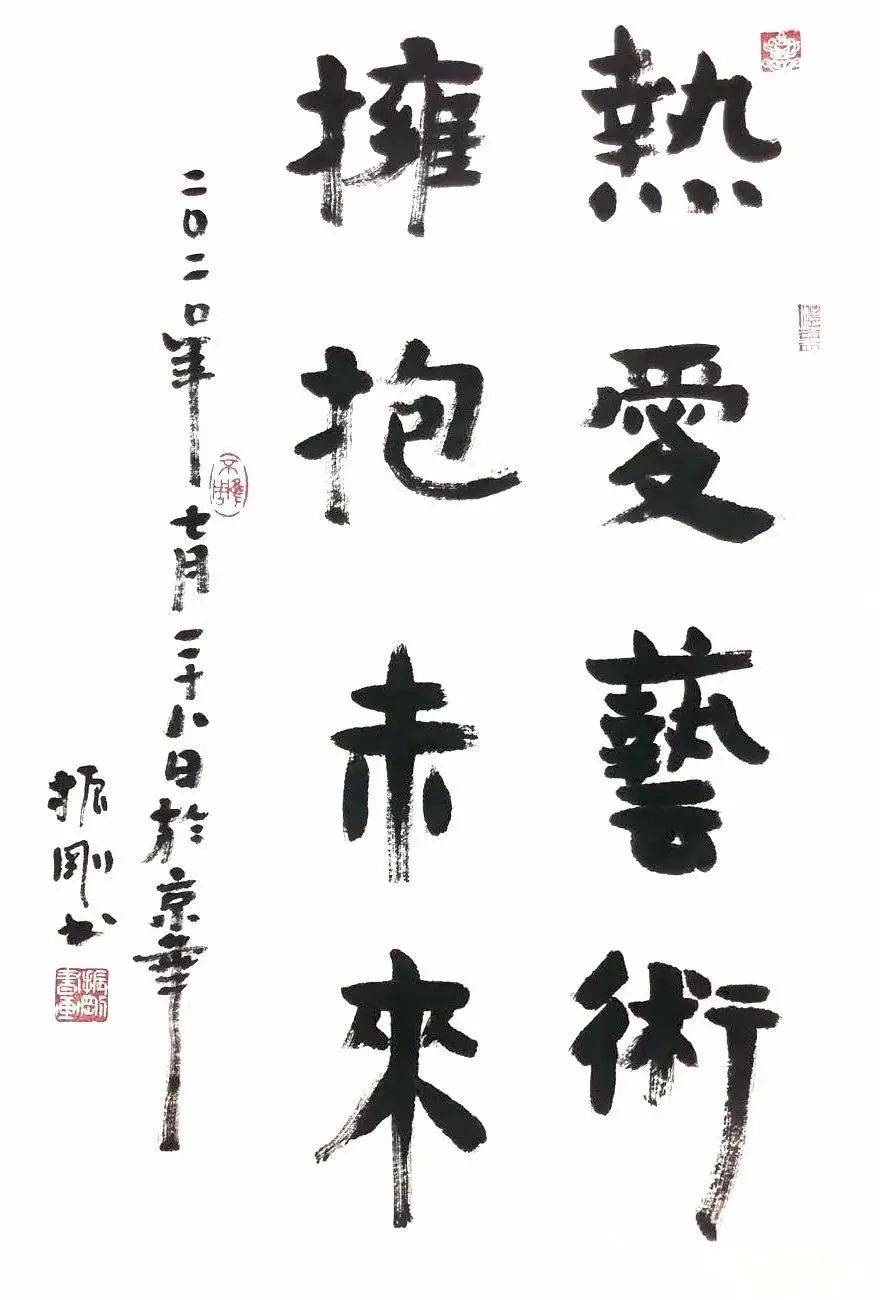 熱愛藝術
擁抱未來
二〇二〇年七月二十八日於京華
振剛书